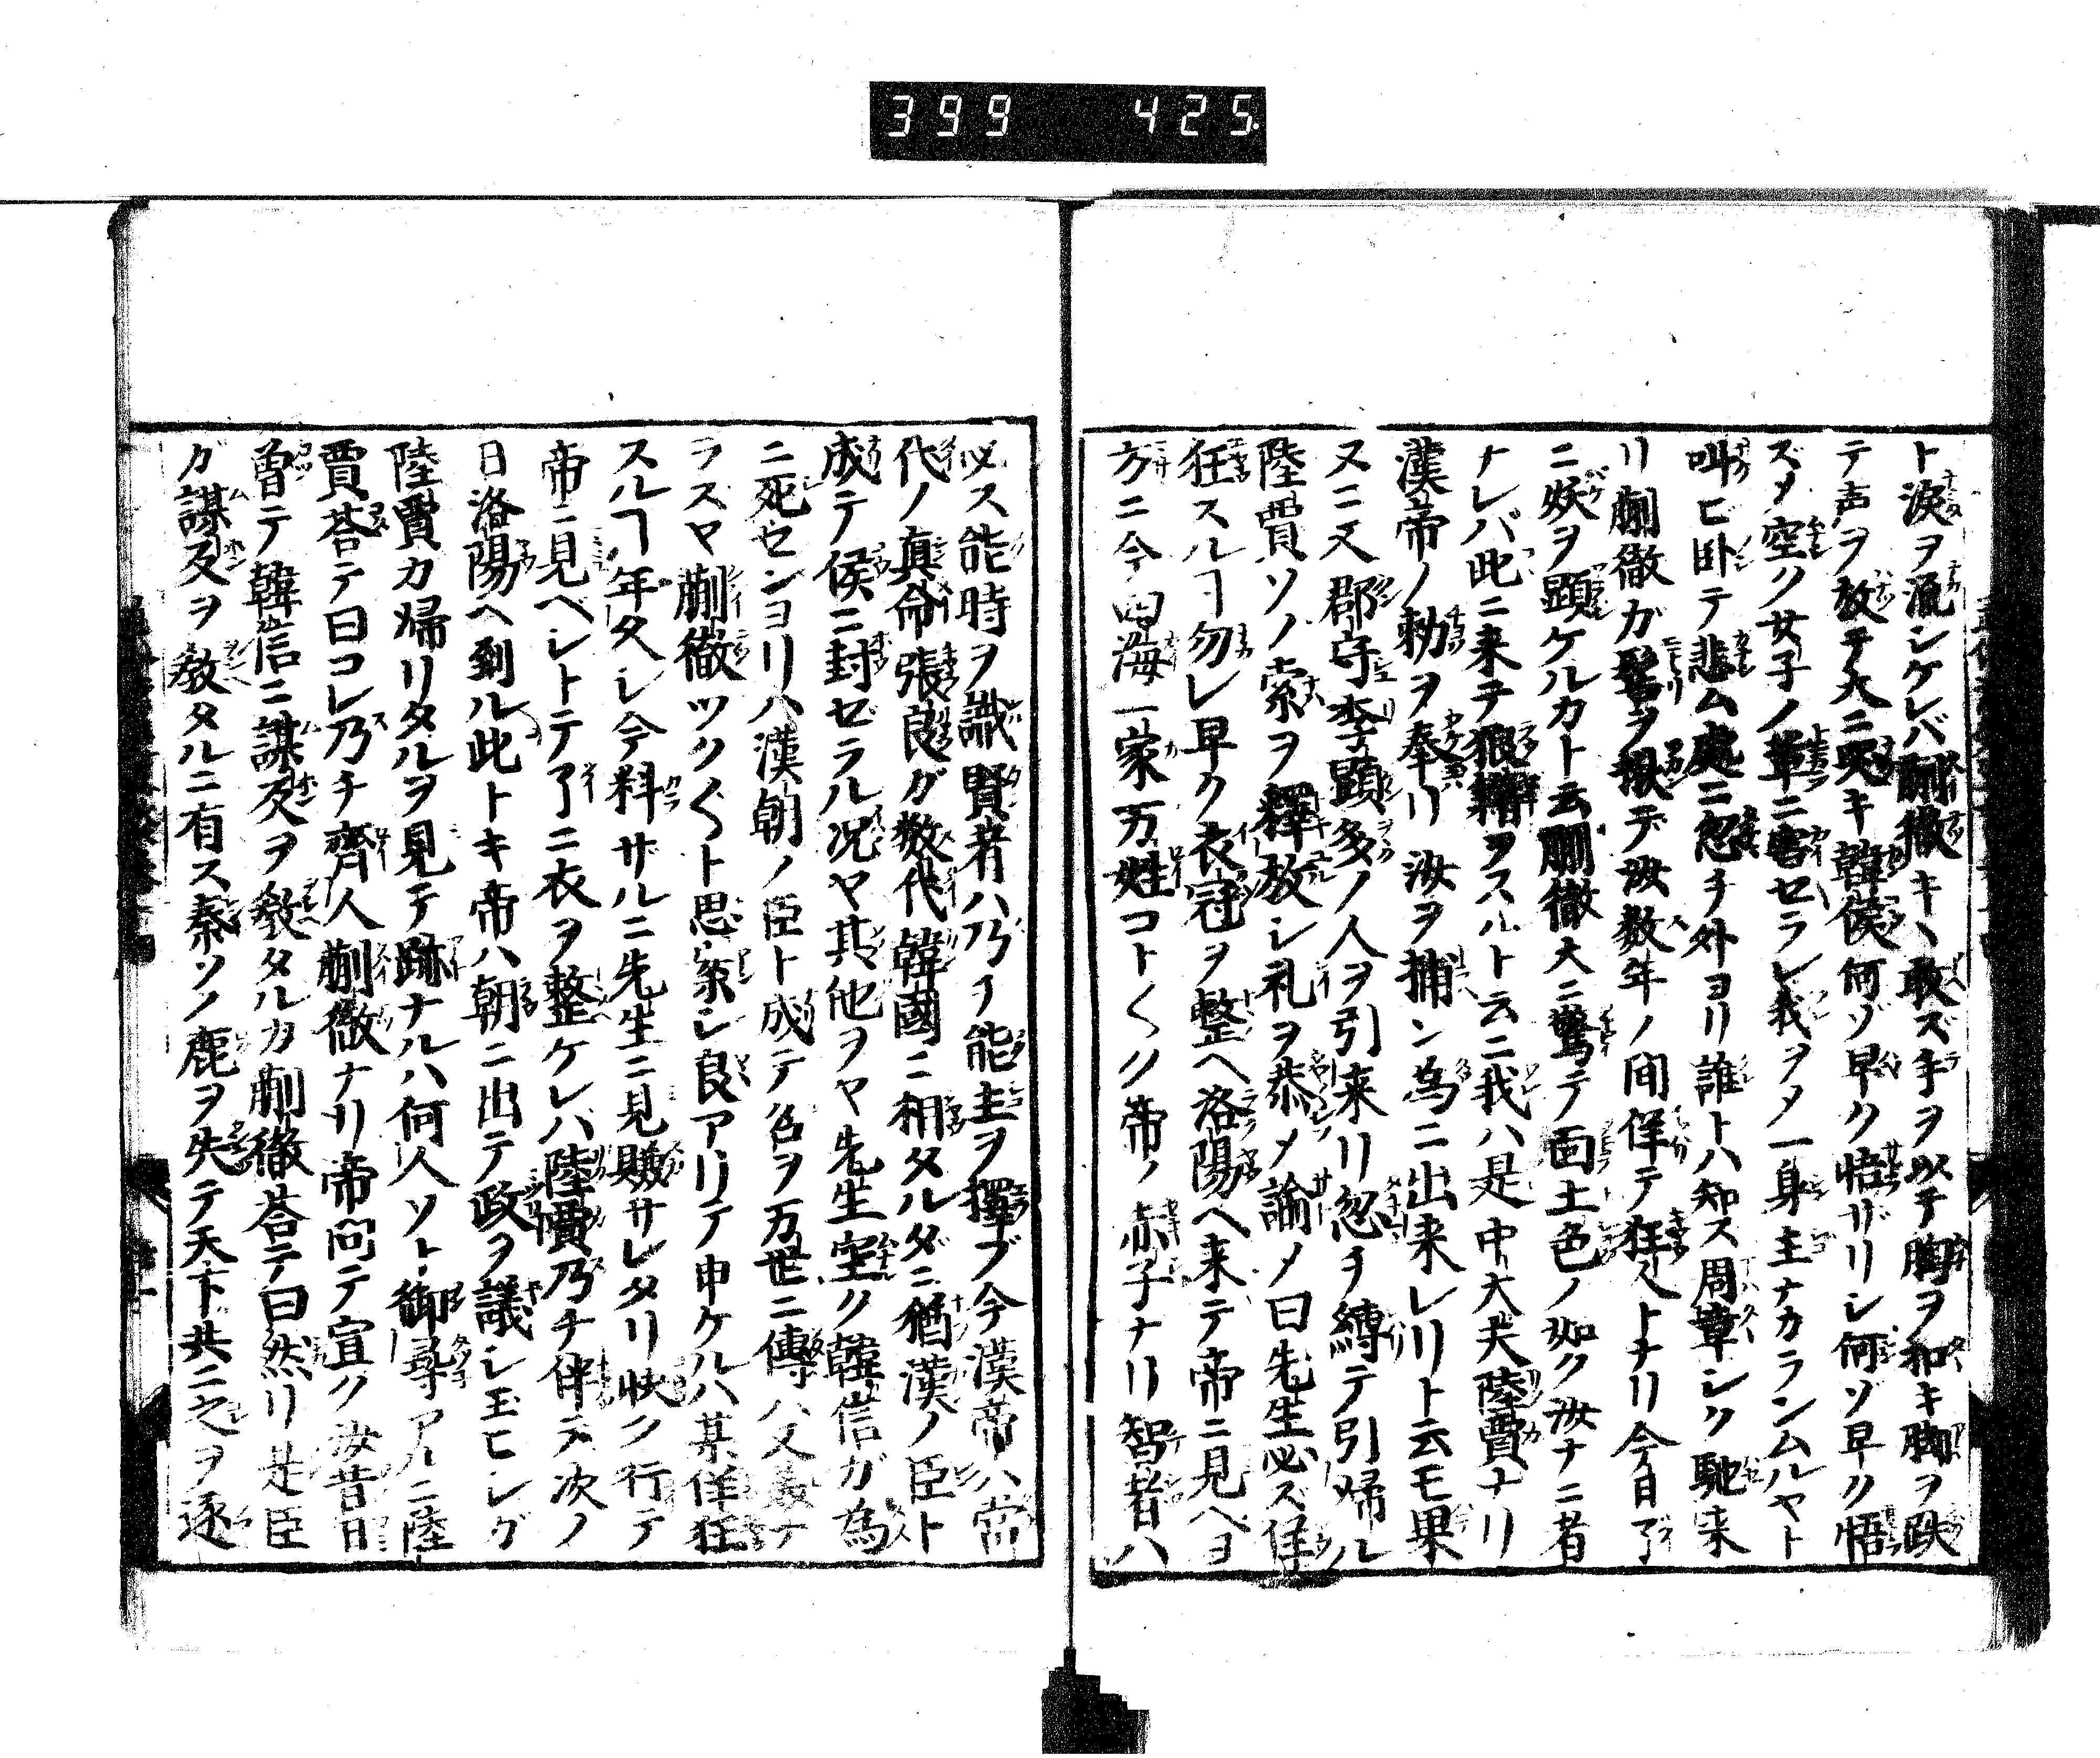 399 425
ト涙ヲ流シケレバ蒯徹キヽ敢ズ手ヲ以テ胸ヲ和キ脚ヲ跌
テ声ヲ放テ大ニ哭キ韓侯何ゾ早ク悟ザリシ何ゾ早ク悟
ズメ空ク女子ノ輩ニ害セラレ我ヲメ一身主ナカランムルヤト
叫ビ卧テ悲ム處ニ忽チ外ヨリ誰トハ知ス周章シク馳来
リ蒯徹ガ髻ヲ掀デ汝数年ノ間佯テ狂人トナリ今日了
ニ妖ヲ顕ケルカト云蒯徹大ニ驚テ面土色ノ如ク汝ナニ者
ナレバ此ニ来テ狼藉ヲスルト云ニ我ハ是中大夫陸賈ナリ
漢帝ノ勅ヲ奉リ汝ヲ捕ン為ニ出来レリト云モ果
ヌニ又郡守李顕多ノ人ヲ引来リ忽チ縛テ引帰ル
陸賈ソノ索ヲ釋放シ礼ヲ恭メ諭メ曰先生必ス佯
狂スルヿ勿レ早ク衣冠ヲ整ヘ洛陽ヘ来テ帝ニ見ヘヨ
方ニ今四海一家万姓コト〱ク帝ノ赤子ナリ智者ハ
必ス能時ヲ識賢者ハ乃チ能主ヲ擇ブ今漢帝ハ常
代ノ真命張良ガ数代韓國ニ相タルダニ猶漢ノ臣ト
成テ侯ニ封ゼラル况ヤ其他ヲヤ先生空ク韓信ガ為
ニ死センヨリハ漢朝ノ臣ト成テ名ヲ万世ニ傳ハ又妙ナ
ラスヤ蒯徹ツク〱ト思案シ良アリテ申ケルハ某佯狂
スルヿ年久シ今料サルニ先生ニ見賺サレタリ快ク行テ
帝ニ見ベシトテ了ニ衣ヲ整ケレバ陸賈乃チ伴テ次ノ
日洛陽ヘ到ル此トキ帝ハ朝ニ出テ政ヲ議シ玉ヒシガ
陸賈カ帰リタルヲ見テ跡ナルハ何人ソト御尋アルニ陸
賈荅テ曰コレ乃チ齊人蒯徹ナリ帝問テ宣ク汝昔日
曾テ韓信ニ謀反ヲ教タルカ蒯徹荅テ曰然リ是臣
ガ謀反ヲ教タルニ有ス秦ソノ鹿ヲ失テ天下共ニ之ヲ逐